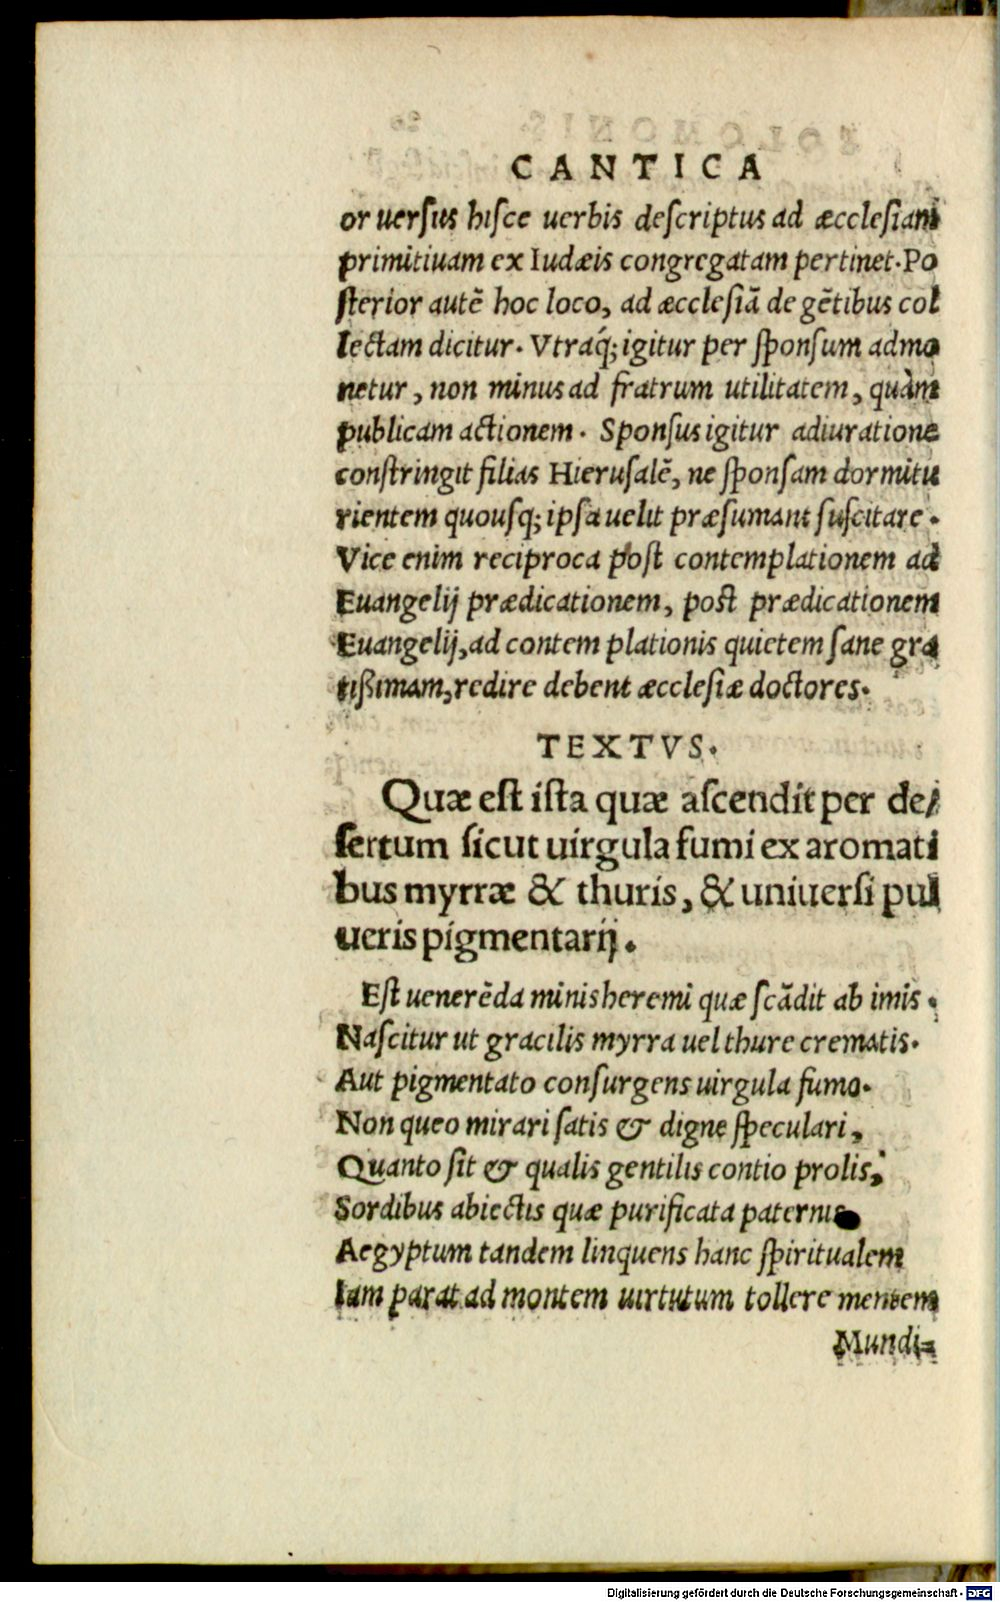 CANTICA
or uersus hisce uerbis descriptus ad æcclesiam
primitiuam ex Iudæis congregatam pertinet. Po
sterior autē hoc loco, ad æcclesiā de gētibus col
lectam dicitur. Vtraq́; igitur per sponsum admo
netur, non minus ad fratrum utilitatem, quàm
publicam actionem. Sponsus igitur adiuratione
constringit filias Hierusalē, ne sponsam dormitu
rientem quousq; ipsa uelit præsumant suscitare.
Vice enim reciproca post contemplationem ad
Euangelij prædicationem, post prædicationem
Euangelij, ad contemplationis quietem sane gra
tißimam, redire debent æcclesiæ doctores.
TEXTVS.
Quæ est ista quæ ascendit per de/
sertum sicut uirgula fumi ex aromati
bus myrræ & thuris, & uniuersi pul
ueris pigmentarij.
Est uenerēda minis heremi quæ scādit ab imis.
Nascitur ut gracilis myrra uel thure crematis.
Aut pigmentato consurgens uirgula fumo.
Non queo mirari satis & digne speculari,
Quanto sit & qualis gentilis contio prolis,
Sordibus abiectis quæ purificata paternis
Aegyptum tandem linquens hanc spiritualem
Iam parat ad montem uirtutum tollere mentem
Mundi=
Digitalisierung gefördert durch die Deutsche Forschungsgemeinschaft - DFG